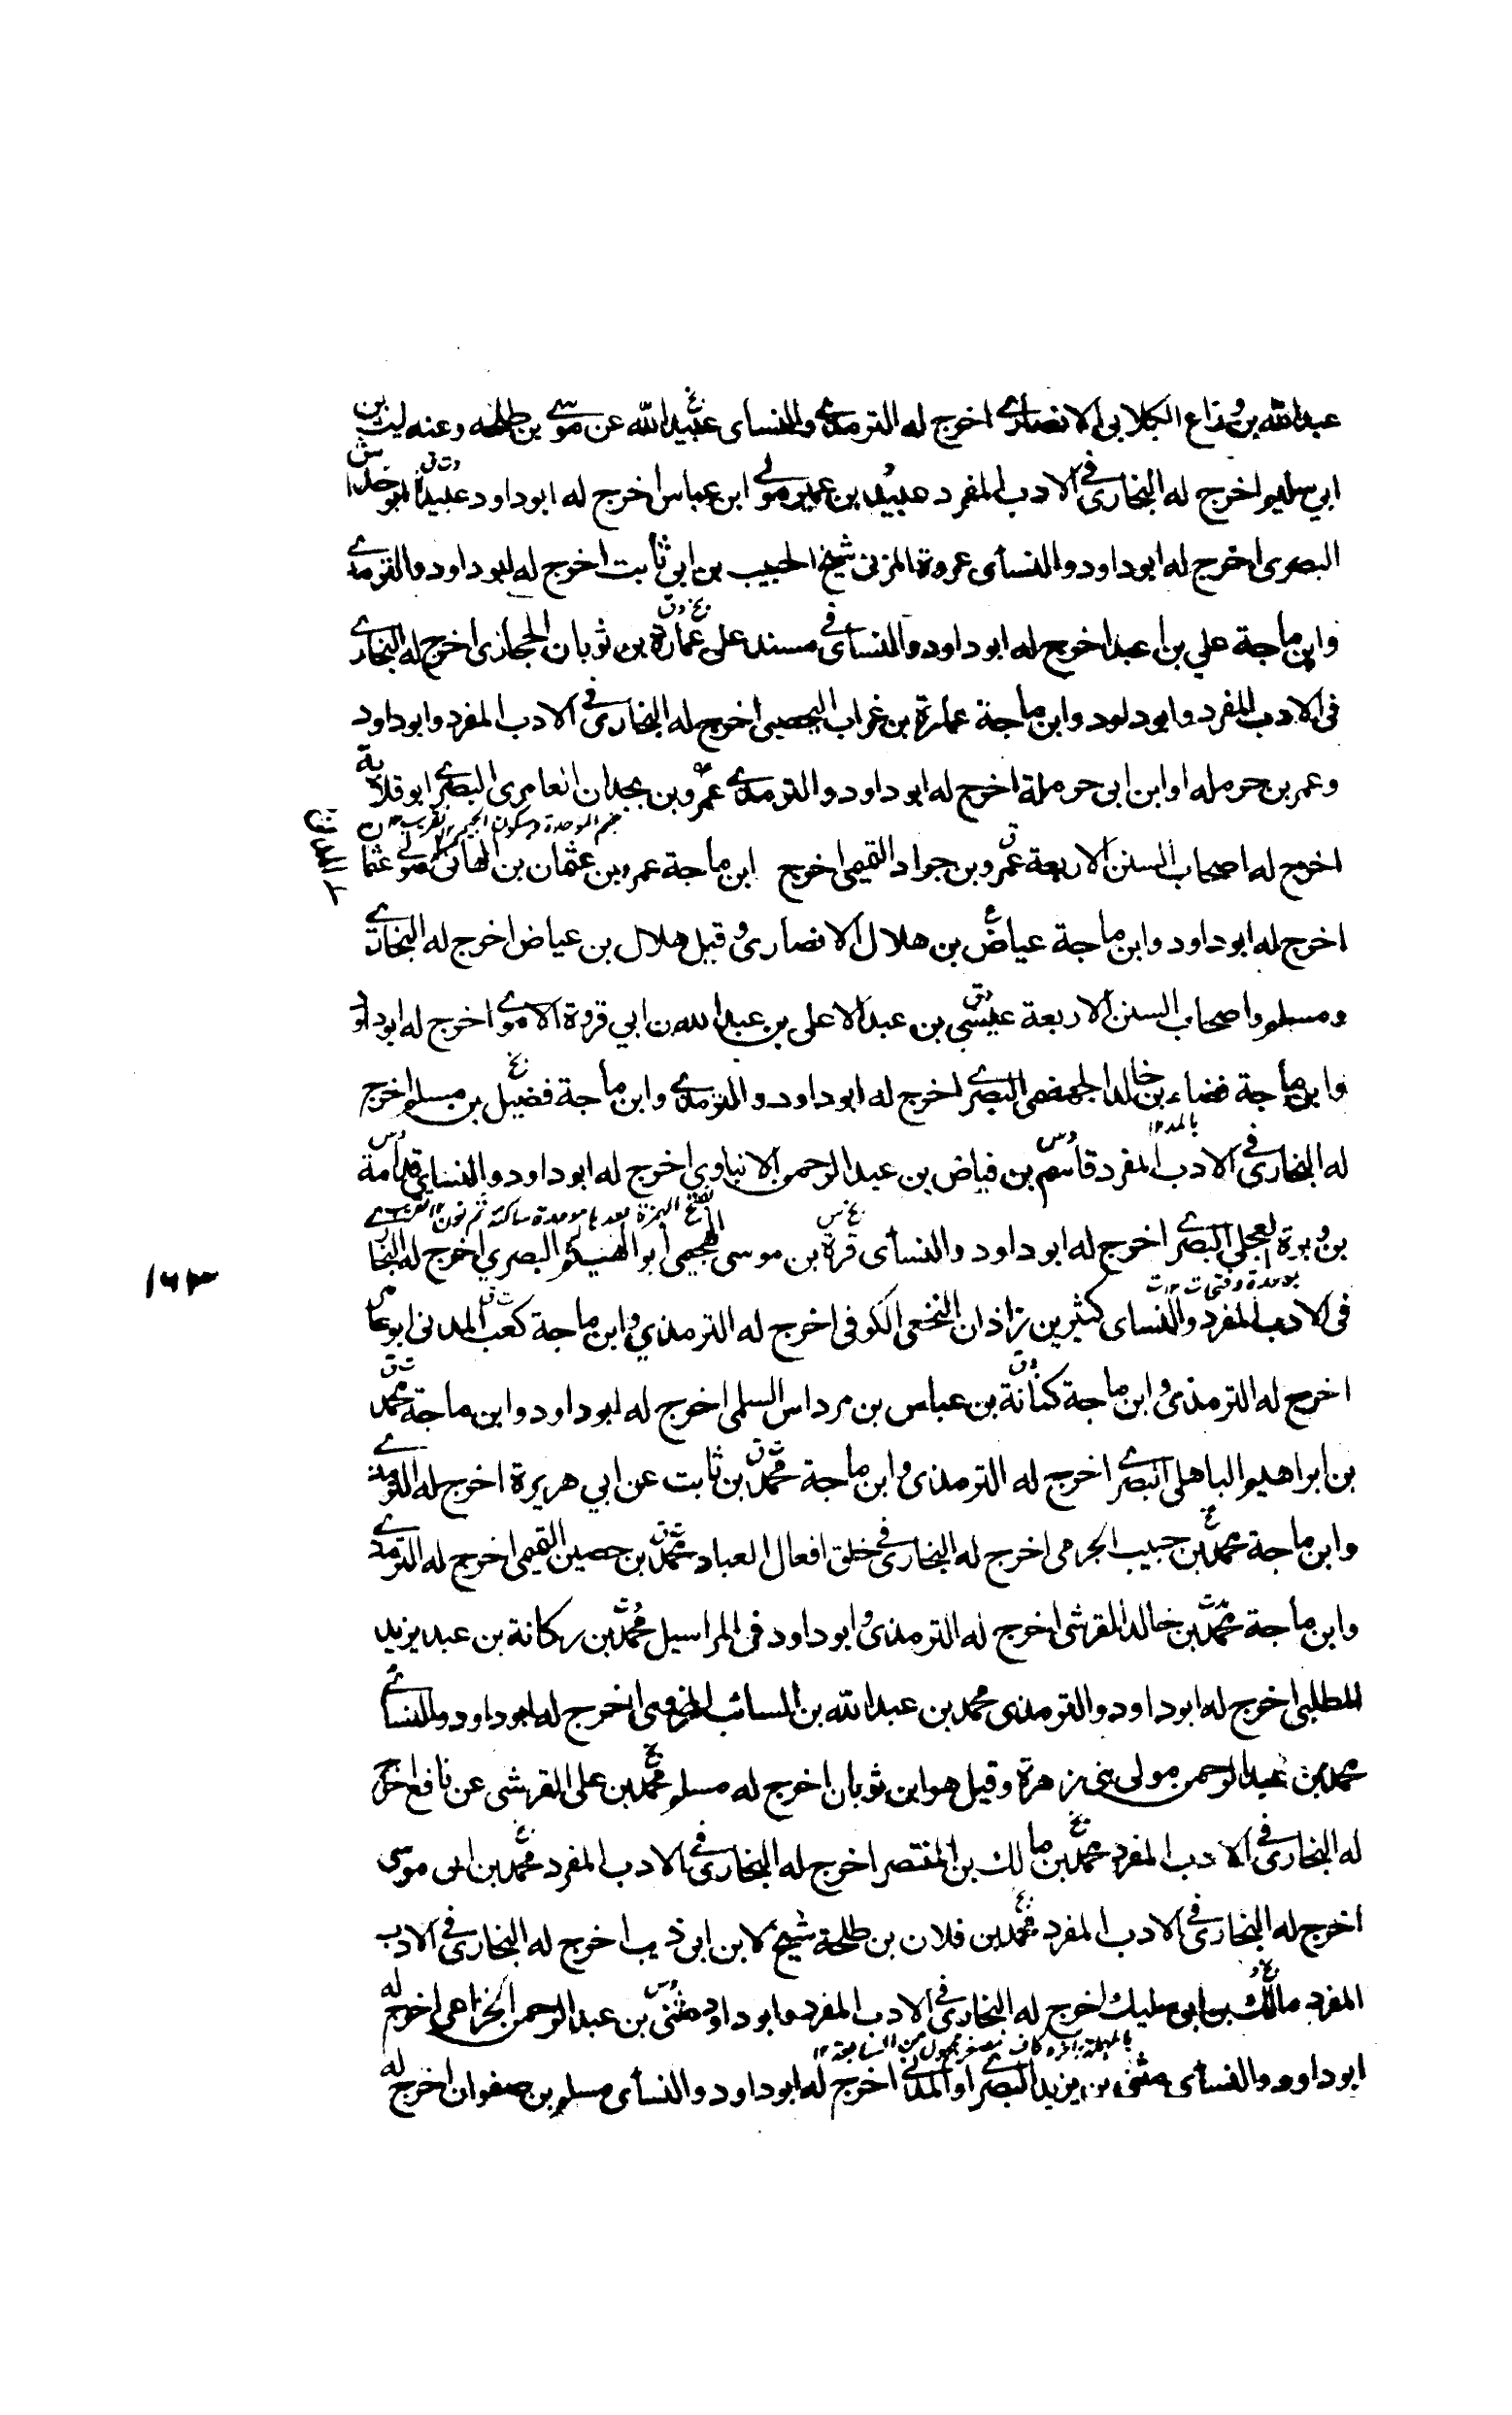 عبدالله بن الكلابي الانصاري اخرج له الترمذي والنسائ عبيدالله عن موسى بن طلحه وعنه ليث بن
ابي سليم اخرج له البخاري في الادب المفرد عبيد بن عمير مولى ابن عباس اخرج له ابو داود عبيدة ابو خداش
البصري اخرج له ابو داود والنسائ عروة المزنى شيخ الحبيب بن ابي ثابت اخرج له ابو داود والترمذي
وابن ماجة علي بن اعبد اخرج له ابو داود والنسائ في مسند على عمارة بن ثوبان الحجازى اخرج له البخاري
في الادب المفرد وابو داود وابن ماجة عمارة بن غراب اليحصبي اخرج له البخارى في الادب المفرد وابو داود
وعمر بن حرمله او ابن ابي حرملة اخرج له ابو داود والترمذي عمرو بن بجدان العامرى البصري ابو قلابة
بضم الموحدة وسكون الجيم
اخرج له اصحاب السنن الاربعة عمرو بن جراد التميمي اخرج ابن ماجة عمرو بن عثمان بن الهانئ مولى عثمان
اخرج له ابو داود وابن ماجة عياض بن هلال الانصارى وقيل هلال بن عياض اخرج له البخاري
ومسلم واصحاب السنن الاربعة عيسى بن عبدالاعلى بن عبدالله بن ابي فروة الاموي اخرج له ابو داود
وابن ماجة فضاء بن خالد الجهضمى البصري اخرج له ابو داود والترمذي وابن ماجة فضيل بن مسلم اخرج
له البخارى في الادب المفرد قاسم بن فياض بن عبدالرحمن الانباوي اخرج له ابو داود والنسائ قدامة
بن وبرة العجلي البصري اخرج له ابو داود والنسائ قرة بن موسى الهجيمي ابو الهيثم البصري اخرج له البخاري
في الادب المفرد والنسائ كثير بن زاذان النخعى الكوفى اخرج له الترمذي وابن ماجة كعب المدنى ابو عامر
اخرج له الترمذى وابن ماجة كنانة بن عباس بن مرداس السلمى اخرج له ابو داود وابن ماجة محمد
بن ابراهيم الباهلى البصري اخرج له الترمذى وابن ماجة محمد بن ثابت عن ابي هريرة اخرج له الترمذي
وابن ماجة محمد بن حبيب الجرمى اخرج له البخارى في خلق افعال العباد محمد بن حصين التميمي اخرج له الترمذي
وابن ماجة محمد بن خالد القرشى اخرج له الترمذى وابو داود في المراسيل محمد بن ركانة بن عبد يزيد
المطلبى اخرج له ابو داود والترمذى محمد بن عبدالله بن السائب المخزومى اخرج له ابو داود والنسائ
محمد بن عبدالرحمن مولى بني زهرة وقيل هو ابن ثوبان اخرج له مسلم محمد بن على القرشى عن نافع اخرج
له البخارى في الادب المفرد محمد بن مالك بن المنتصر اخرج له البخارى في الادب المفرد محمد بن ابى موسى
اخرج له البخارى في الادب المفرد محمد بن فلان بن طلحة شيخ لابن ابي ذيب اخرج له البخارى في الادب
المفرد مالك بن اخرج له البخارى في الادب المفرد وابو داود مثنى بن عبدالرحمن الخزاعي اخرج له
ابو داود والنسائ مثنى بن يزيد البصري او المدني اخرج له ابو داود والنسائ مسلم بن صفوان اخرج له
١٦٣